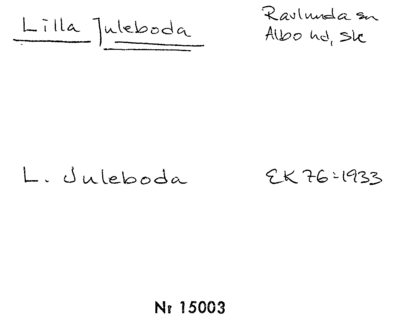 Lilla Juleboda
Ravlunda sn
Albo hd, Sk
L. Juleboda
EK 76:1933
Nr 15003